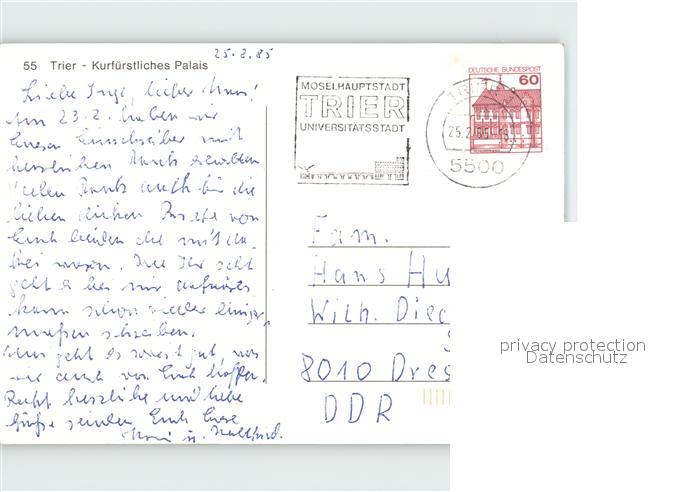 25.2.85
55 Trier - Kurfürstliches Palais
Liebe Inge, lieber Hans!
Am 23.2. haben wir
Einschreiben mit
herzlichem Dank erhalten
Vielen Dank auch für die
lieben dicken von
Euch beiden die mit da-
bei waren. Ihr seht
geht es bei mir aufwärts
kann schon wieder einiger-
maßen schreiben.
Uns geht es sonst gut, was
wir auch von Euch hoffen.
Recht herzliche und liebe
Grüße senden Euch Eure
u.
MOSELHAUPTSTADT
TRIER
UNIVERSITÄTSSTADT
DEUTSCHE BUNDESPOST
60
TRIER
25.2.85
5500
Fam.
Hans Hu
Wilh. Piec
8010 Dres
DDR
privacy protection
Datenschutz